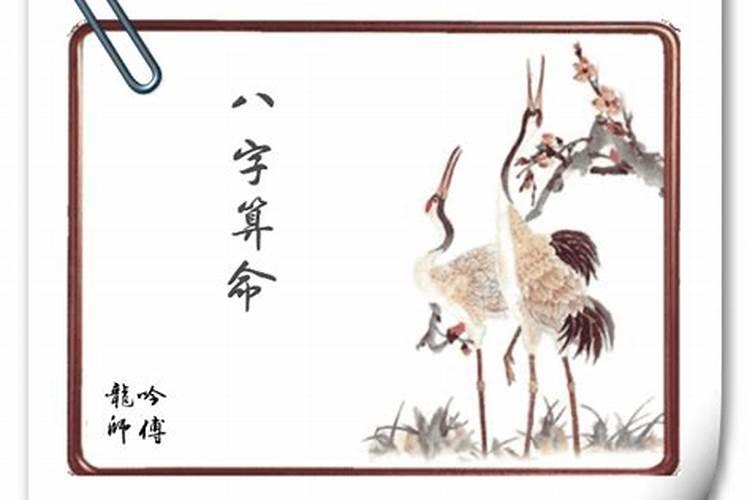 八字算命
龍吟
師傅